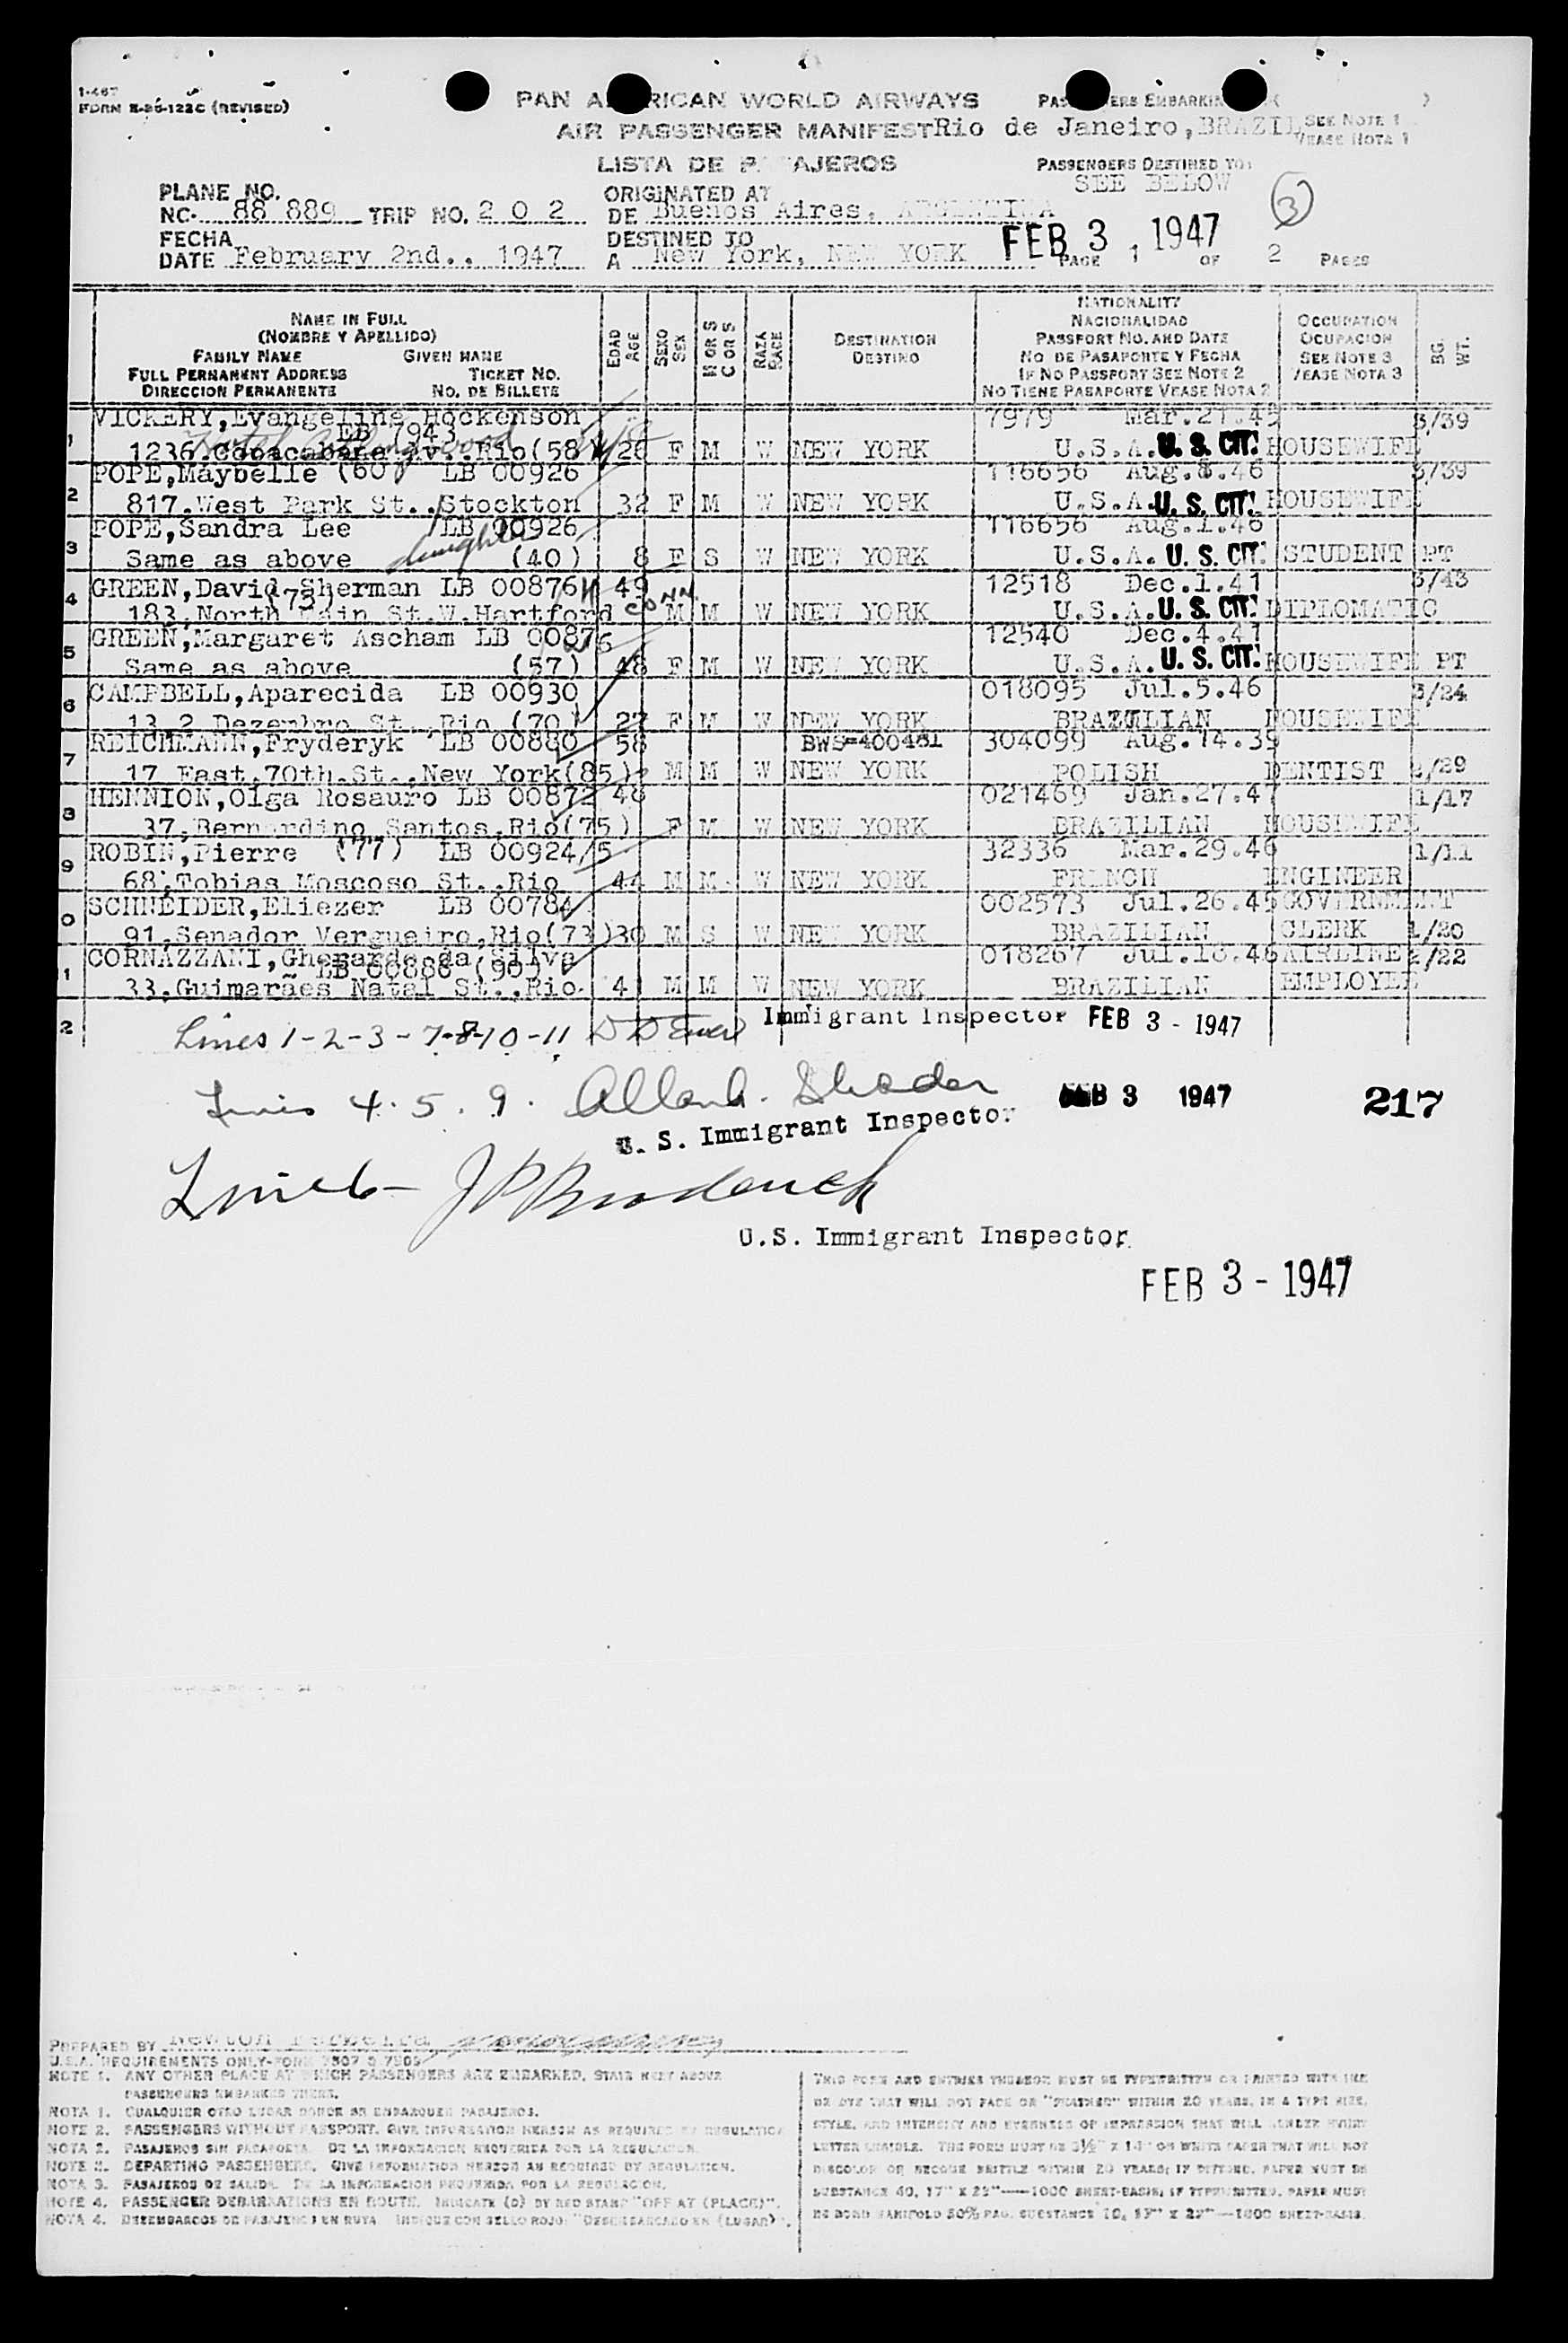 1-467
FORM (REVISED)
PAN A RICAN WORLD AIRWAYS
PAS ERS EMBARKIN
AIR PASSENGER MANIFEST
Rio de Janeiro, BRAZIL
SEE NOTE 1
VEASE NOTA 1
LISTA DE P AJEROS
PASSENGERS DESTINED TO:
SEE BELOW
3
PLANE NO.
NC. 88 889 TRIP NO. 2 0 2
ORIGINATED AT
DE Buenos Aires, ARGENTINA
FECHA
DATE February 2nd., 1947
DESTINED TO
A New York, NEW YORK
FEB 3 1947
PAGE 1 OF 2 PAGES
NAME IN FULL
(NOMBRE Y APELLIDO)
FAMILY NAME GIVEN NAME
FULL PERMANENT ADDRESS TICKET NO.
DIRECCION PERMANENTE NO. DE BILLETE
EDAD AGE
SEXO SEX
M OR S C OR S
RAZA RACE
DESTINATION
DESTINO
NATIONALITY
NACIONALIDAD
PASSPORT NO. AND DATE
NO. DE PASAPORTE Y FECHA
IF NO PASSPORT SEE NOTE 2
NO TIENE PASAPORTE VEASE NOTA 2
OCCUPATION
OCUPACION
SEE NOTE 3
VEASE NOTA 3
BG. WT.
VICKERY, Evangeline Hockenson 7979 Mar.21.45 3/39
1 1236.Copacabana Av..Rio(58 26 F M W NEW YORK U.S.A. U. S. CIT. HOUSEWIFE
POPE,Maybelle (60) LB 00926 116656 Aug. 46 3/39
2 817.West Park St..Stockton 32 F M W NEW YORK U.S.A. U. S. CIT. HOUSEWIFE
POPE,Sandra Lee LB 00926 116656 Aug.1.46
daughter
3 Same as above (40) 8 F S W NEW YORK U.S.A. U. S. CIT. STUDENT PT
GREEN,David Sherman LB 00876 49 12518 Dec.1.41 3/43
CONN.
4 183,North Main St.W.Hartford M M W NEW YORK U.S.A. U. S. CIT. DIPLOMATIC
GREEN,Margaret Ascham LB 00876 12540 Dec.4.41
5 Same as above (57) 48 F M W NEW YORK U.S.A. U. S. CIT. HOUSEWIFE PT
CAMPBELL,Aparecida LB 00930 018095 Jul.5.46 3/24
6 13 2 Dezembro St.,Rio (70) 27 F M W NEW YORK BRAZILIAN HOUSEWIFE
REICHMANN,Fryderyk LB 00880 58 BWS=400481 304099 Aug.14.39
7 17 East,70th.St.,New York(85) M M W NEW YORK POLISH DENTIST 2/29
HENNION,Olga Rosauro LB 00872 48 021469 Jan.27.47 1/17
8 37,Bernardino Santos,Rio(75) F M W NEW YORK BRAZILIAN HOUSEWIFE
ROBIN,Pierre (77) LB 00924/5 32336 Mar.29.46 1/11
9 68,Tobias Moscoso St.,Rio 44 M M W NEW YORK FRENCH ENGINEER
SCHNEIDER,Eliezer LB 00784 002573 Jul.26.45 GOVERNMENT
0 91,Senador Vergueiro,Rio(73) 30 M S W NEW YORK BRAZILIAN CLERK 1/20
CORNAZZANI,Gherardo da Silva 018267 Jul.18.46 AIRLINE 2/22
LB 00886 (90)
1 33,Guimarães Natal St.,Rio. 41 M M W NEW YORK BRAZILIAN EMPLOYEE
2
Lines 1-2-3-7-8-10-11 Immigrant Inspector FEB 3 - 1947
Lines 4. 5. 9.
FEB 3 1947
217
U. S. Immigrant Inspector
Line 6 -
U.S. Immigrant Inspector
FEB 3 - 1947
PREPARED BY
U.S.A. REQUIREMENTS ONLY-FORM
NOTE 1. ANY OTHER PLACE AT WHICH PASSENGERS ARE EMBARKED, STATE NEXT ABOVE
PASSENGERS EMBARKED THERE.
NOTA 1. CUALQUIER OTRO LUGAR DONDE SE EMBARQUEN PASAJEROS.
NOTE 2. PASSENGERS WITHOUT PASSPORT. GIVE INFORMATION HEREON AS REQUIRED BY REGULATION.
NOTA 2. PASAJEROS SIN PASAPORTE. DE LA INFORMACION REQUERIDA POR LA REGULACION.
NOTE 3. DEPARTING PASSENGERS. GIVE INFORMATION HEREON AS REQUIRED BY REGULATION.
NOTA 3. PASAJEROS DE SALIDA. DE LA INFORMACION REQUERIDA POR LA REGULACION.
NOTE 4. PASSENGER DEBARKATIONS EN ROUTE. INDICATE (D) BY RED STAMP "OFF AT (PLACE)".
NOTA 4. DESEMBARCOS DE PASAJEROS EN RUTA. INDIQUE CON SELLO ROJO: "DESEMBARCADO EN (LUGAR)".
THIS FORM AND ENTRIES THEREON MUST BE TYPEWRITTEN OR PRINTED WITH INK
OR DYE THAT WILL NOT FADE OR "FEATHER" WITHIN 20 YEARS, IN A TYPE SIZE,
STYLE, AND INTENSITY AND EVENNESS OF IMPRESSION THAT WILL RENDER EVERY
LETTER LEGIBLE. THE FORM MUST BE 8½" X 14" ON WHITE PAPER THAT WILL NOT
DISCOLOR OR BECOME BRITTLE WITHIN 20 YEARS; IF PRINTED, PAPER MUST BE
SUBSTANCE 40, 17" X 22"—1000 SHEET-BASIS; IF TYPEWRITTEN, PAPER MUST
BE BOND MANIFOLD 50% RAG, SUBSTANCE 10, 17" X 22"—1000 SHEET-BASIS.